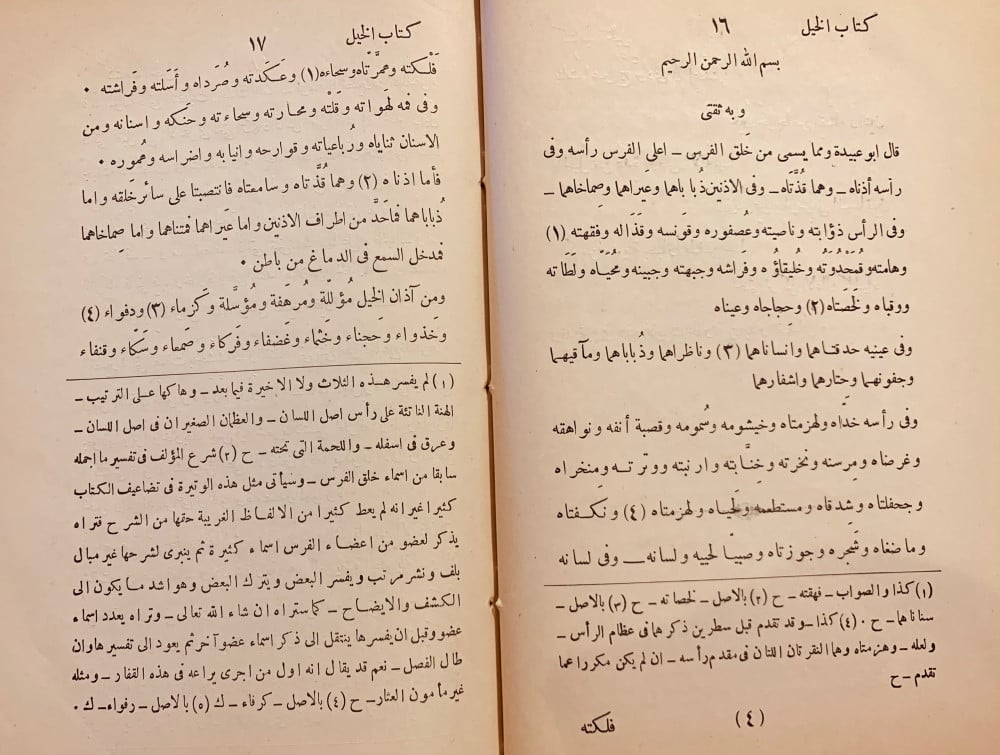 كتاب الخيل ١٦
بسم الله الرحمن الرحيم
و به ثقتى
قال ابو عبيدة ومما يسمى من خَلق الفرس ــ اعلى الفرس رأسه وفى
رأسه أذناه ــ وهما قُذَّتَاه ــ وفى الاذنين ذُبا باهما وعَيراهما وصِماخاهما ــ
وفى الرأس ذؤابته وناصيته وعُصفوره وقَونسه وقَذَاله وفقهته (١)
وهامته وقُمَحْدُوَتُه وخُليقاؤُه وفَراشه وجبهته وجبينه ومُحَيَّاه ولَطَاته
ووقباه ولَخَصَتاه (٢) وحِجاجاه وعيناه
وفى عينيه حدقتاهما وانساناهما (٣) وناظراهما وذُباباهما ومآقيهما
وجفونهما وحِتارهما واشفارهما
وفى رأسه خدّاه ولهزمتاه وخيشومه وسُمومه وقصبة أنفه ونواهقه
وغرضاه ومرسنه ونخرته وخِنَّابته وارنبته ووترتــه ومنخراه
وجحفلتاه وشدقاه ومستطعمه ولَحياه ولهزمتاه (٤) ونكــفتاه
وماضغاه وشَجره وجوزتاه وصبيّا لحييه ولسانه ـــ وفى لسانه
(١) كذا والصواب ــ فهقته ــ ح (٢) بالاصل ــ لخصاته ــ ح (٣) بالاصل ــ
سناناهما ــ ح ٠ (٤) كذا ــ وقد تقدم قبل سطرين ذكرهما فى عظام الرأس ــ
ولعله ــ وهزمتاه وهما النقرتان اللتان فى مقدم رأسه ــ ان لم يكن مكررا عما
تقدم ــ ح
(٤) فلكته
كتاب الخيل ١٧
فَلْكته وعَمَرَّتاه وسحاءه (١) وعَكَدته وصُرَداه وأَسَلته وفَراشته ٠
وفى فمه لهَواته وقَلْته ومحارته وسحاءته وحنَكه واسنانه ومن
الاسنان ثناياه ورُباعياته وقوارحه وانيابه واضراسه وعُموره ٠
فأما اذناه (٢) وهما قُذَّتاه وسامعتاه فانتصبتا على سائر خَلقه واما
ذُباباهما فما حَدَّ من اطراف الاذنين واما عَيراهما فمتناهما واما صِماخاهما
فمدخل السمع فى الدماغ من باطن ٠
ومن آذان الخيل مُؤَلّلة ومُرهَفة ومُؤَسَّلة وكَزماء (٣) ودفواء (٤)
وخَذواء وحجناء وخَثماء وغَضفاء وفَركاء وصَمعاء وسَكّاء وقنفاء
(١) لم يفسر هــذه الثلاث ولا الاخيرة فيما بعد ــ وهاكها عــلى الترتيب ــ
الهنة الناتئة على رأس اصل اللسان ــ والعظمان الصغيران فى اصل اللسان ــ
وعرق فى اسفله ــ واللحمة التى تحته ــ ح (٢) شرع المؤلف فى تفسير ما اجمله
سابقا من اسماء خلق الفرس ــ وسيأتى مثل هذه الوتيرة فى تضاعيف الكتاب
كثيرا غير انه لم يعط كثيرا من الالفاظ الغريبة حقها من الشرح فتراه
يذكر لعضو من اعضاء الفرس اسماء كثيرة ثم ينبرى لشرحها غير مبال
بلف ونشر مرتب ويفسر البعض ويترك البعض وهو اشد ما يكون الى
الكشف والايضاح ــ كما ستراه ان شاء الله تعالى ــ وتراه يعدد اسماء
عضو وقبل ان يفسرها ينتقل الى ذكر اسماء عضو آخر ثم يعود الى تفسيرها وان
طال الفصل ــ نعم قد يقال انه اول من اجرى يراعه فى هذه القفار ــ ومثله
غير مأمون العثار ــ ح (٤) بالاصل ــ كرفاء ــ ك (٥) بالاصل ــ رفواء ــ ك ٠